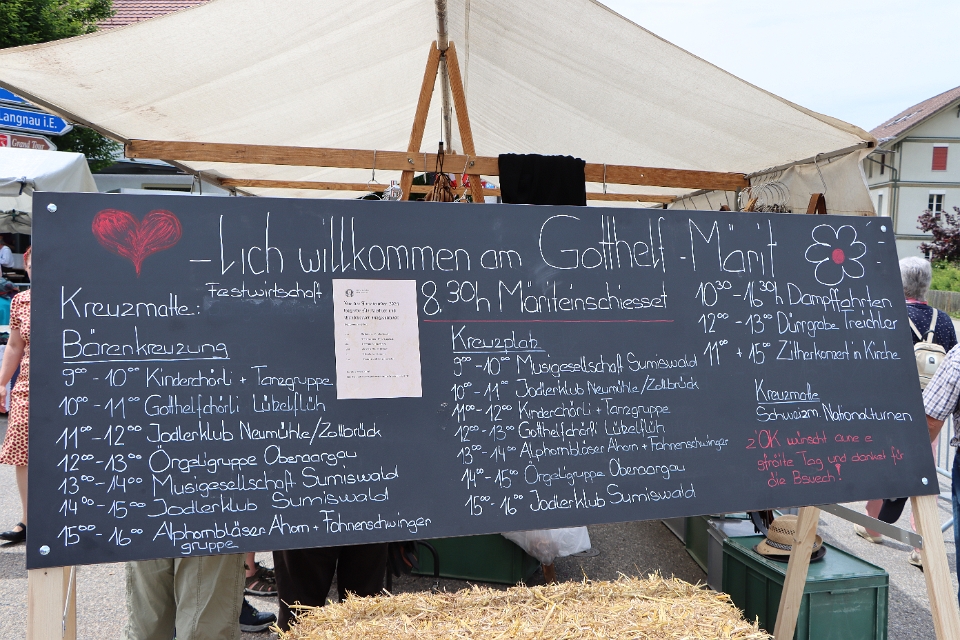 Langnau i.E.
Grand Tour
- Lich willkommen am Gotthelf - Märit -
Kreuzmatte: Festwirtschaft
8.30h Märiteinschiesset
Bärenkreuzung
9⁰⁰ - 10⁰⁰ Kinderchörli + Tanzgruppe
10⁰⁰ - 11⁰⁰ Gotthelfchörli Lützelflüh
11⁰⁰ - 12⁰⁰ Jodlerklub Neumühle/Zollbrück
12⁰⁰ - 13⁰⁰ Örgeligruppe Oberaargau
13⁰⁰ - 14⁰⁰ Musigesellschaft Sumiswald
14⁰⁰ - 15⁰⁰ Jodlerklub Sumiswald
15⁰⁰ - 16⁰⁰ Alphornbläser Ahorn + Fahnenschwinger
gruppe
Kreuzplatz
9⁰⁰ - 10⁰⁰ Musigesellschaft Sumiswald
10⁰⁰ - 11⁰⁰ Jodlerklub Neumühle/Zollbrück
11⁰⁰ - 12⁰⁰ Kinderchörli + Tanzgruppe
12⁰⁰ - 13⁰⁰ Gotthelfchörli Lützelflüh
13⁰⁰ - 14⁰⁰ Alphornbläser Ahorn + Fahnenschwinger
14⁰⁰ - 15⁰⁰ Örgeligruppe Oberaargau
15⁰⁰ - 16⁰⁰ Jodlerklub Sumiswald
10³⁰ - 16³⁰h Dampffahrten
12⁰⁰ - 13⁰⁰ Dürrgrabe Treichler
11⁰⁰ + 15⁰⁰ Zitherkonzert in Kirche
Kreuzmatte
Schweizm. Nationalturnen
z OK wünscht aune e
gfröite Tag und danket für
die Bsuech!